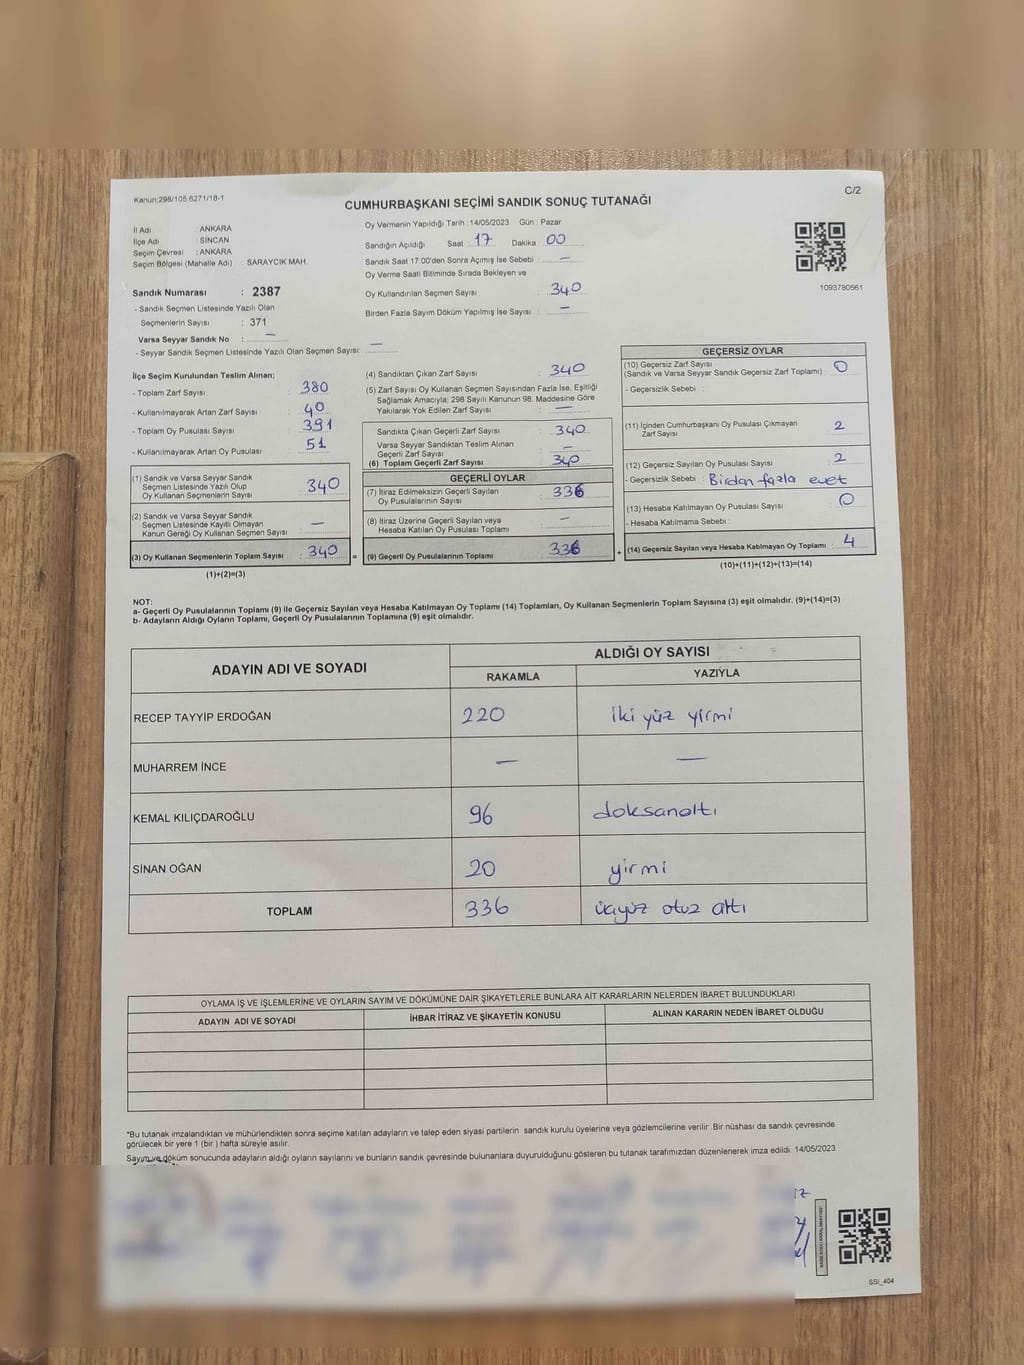 Kanun:298/105,6271/18-1
C/2
CUMHURBAŞKANI SEÇİMİ SANDIK SONUÇ TUTANAĞI
İl Adı : ANKARA
İlçe Adı : SİNCAN
Seçim Çevresi : ANKARA
Seçim Bölgesi (Mahalle Adı) : SARAYCIK MAH.
Sandık Numarası : 2387
- Sandık Seçmen Listesinde Yazılı Olan
Seçmenlerin Sayısı : 371
Varsa Seyyar Sandık No : —
- Seyyar Sandık Seçmen Listesinde Yazılı Olan Seçmen Sayısı: —
Oy Vermenin Yapıldığı Tarih : 14/05/2023 Gün : Pazar
Sandığın Açıldığı Saat : 17 Dakika : 00
Sandık Saat 17:00'den Sonra Açımış İse Sebebi : —
Oy Verme Saati Bitiminde Sırada Bekleyen ve
Oy Kullandırılan Seçmen Sayısı : 340
Birden Fazla Sayım Döküm Yapılmış İse Sayısı : —
1093780561
İlçe Seçim Kurulundan Teslim Alınan;
- Toplam Zarf Sayısı : 380
- Kullanılmayarak Artan Zarf Sayısı : 40
- Toplam Oy Pusulası Sayısı : 391
- Kullanılmayarak Artan Oy Pusulası : 51
(1) Sandık ve Varsa Seyyar Sandık
Seçmen Listesinde Yazılı Olup
Oy Kullanan Seçmenlerin Sayısı : 340
(2) Sandık ve Varsa Seyyar Sandık
Seçmen Listesinde Kayıtlı Olmayan
Kanun Gereği Oy Kullanan Seçmen Sayısı : —
(3) Oy Kullanan Seçmenlerin Toplam Sayısı : 340
(1)+(2)=(3)
(4) Sandıktan Çıkan Zarf Sayısı : 340
(5) Zarf Sayısı Oy Kullanan Seçmen Sayısından Fazla İse, Eşitliği
Sağlamak Amacıyla; 298 Sayılı Kanunun 98. Maddesine Göre
Yakılarak Yok Edilen Zarf Sayısı : —
Sandıkta Çıkan Geçerli Zarf Sayısı : 340
Varsa Seyyar Sandıktan Teslim Alınan
Geçerli Zarf Sayısı : —
(6) Toplam Geçerli Zarf Sayısı : 340
GEÇERLİ OYLAR
(7) İtiraz Edilmeksizin Geçerli Sayılan
Oy Pusulalarının Sayısı : 336
(8) İtiraz Üzerine Geçerli Sayılan veya
Hesaba Katılan Oy Pusulası Toplamı : —
= (9) Geçerli Oy Pusulalarının Toplamı : 336
GEÇERSİZ OYLAR
(10) Geçersiz Zarf Sayısı
(Sandık ve Varsa Seyyar Sandık Geçersiz Zarf Toplamı) : 0
- Geçersizlik Sebebi :
(11) İçinden Cumhurbaşkanı Oy Pusulası Çıkmayan
Zarf Sayısı : 2
(12) Geçersiz Sayılan Oy Pusulası Sayısı : 2
- Geçersizlik Sebebi : Birden fazla evet
(13) Hesaba Katılmayan Oy Pusulası Sayısı : 0
- Hesaba Katılmama Sebebi :
+ (14) Geçersiz Sayılan veya Hesaba Katılmayan Oy Toplamı : 4
(10)+(11)+(12)+(13)=(14)
NOT:
a- Geçerli Oy Pusulalarının Toplamı (9) ile Geçersiz Sayılan veya Hesaba Katılmayan Oy Toplamı (14) Toplamları, Oy Kullanan Seçmenlerin Toplam Sayısına (3) eşit olmalıdır. (9)+(14)=(3)
b- Adayların Aldığı Oyların Toplamı, Geçerli Oy Pusulalarının Toplamına (9) eşit olmalıdır.
ADAYIN ADI VE SOYADI ALDIĞI OY SAYISI
RAKAMLA YAZIYLA
RECEP TAYYİP ERDOĞAN 220 iki yüz yirmi
MUHARREM İNCE — —
KEMAL KILIÇDAROĞLU 96 doksanaltı
SİNAN OĞAN 20 yirmi
TOPLAM 336 üçyüz otuz altı
OYLAMA İŞ VE İŞLEMLERİNE VE OYLARIN SAYIM VE DÖKÜMÜNE DAİR ŞİKAYETLERLE BUNLARA AİT KARARLARIN NELERDEN İBARET BULUNDUKLARI
ADAYIN ADI VE SOYADI İHBAR İTİRAZ VE ŞİKAYETİN KONUSU ALINAN KARARIN NEDEN İBARET OLDUĞU
*Bu tutanak imzalandıktan ve mühürlendikten sonra seçime katılan adayların ve talep eden siyasi partilerin sandık kurulu üyelerine veya gözlemcilerine verilir .Bir nüshası da sandık çevresinde
görülecek bir yere 1 (bir ) hafta süreyle asılır.
Sayım ve döküm sonucunda adayların aldığı oyların sayılarını ve bunların sandık çevresinde bulunanlara duyurulduğunu gösteren bu tutanak tarafımızdan düzenlenerek imza edildi. 14/05/2023
SSİ_404